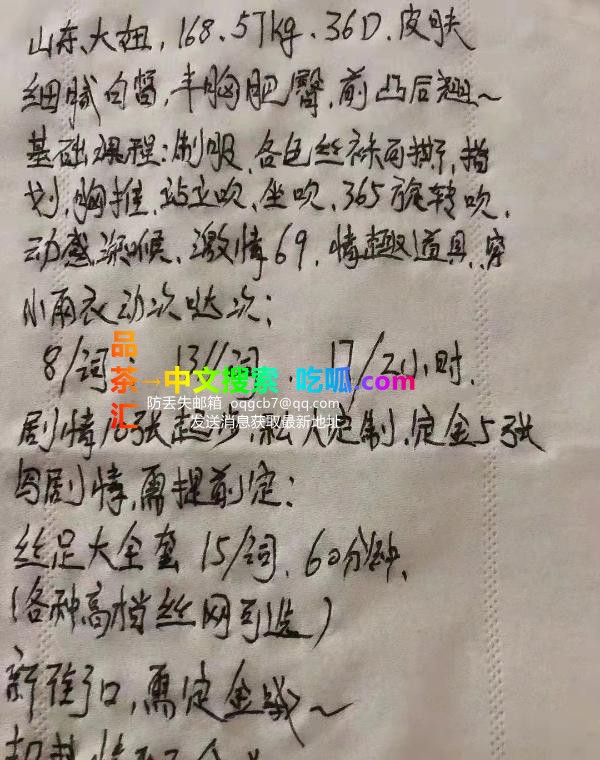 山东、大妞,168.57kg.36D.皮肤
细腻白皙,丰胸肥臀,前凸后翘~
基础课程:制服、各色丝袜可撕,指
划,胸推,站立吹、坐吹、365旋转吹,
动感深喉、激情69,情趣道具,穿
小雨衣动次哒次:
8/词 13/2词 17/2小时.
品茶汇→中文搜索 吃呱.com
防丢失邮箱 oqgcb7@qq.com
发送消息获取最新地址
剧情18张起步,私人定制,定金5张
写剧情,需提前定:
丝足大全套 15/词,60分钟,
(各种高档丝网可选)
新街口,需定金哦~